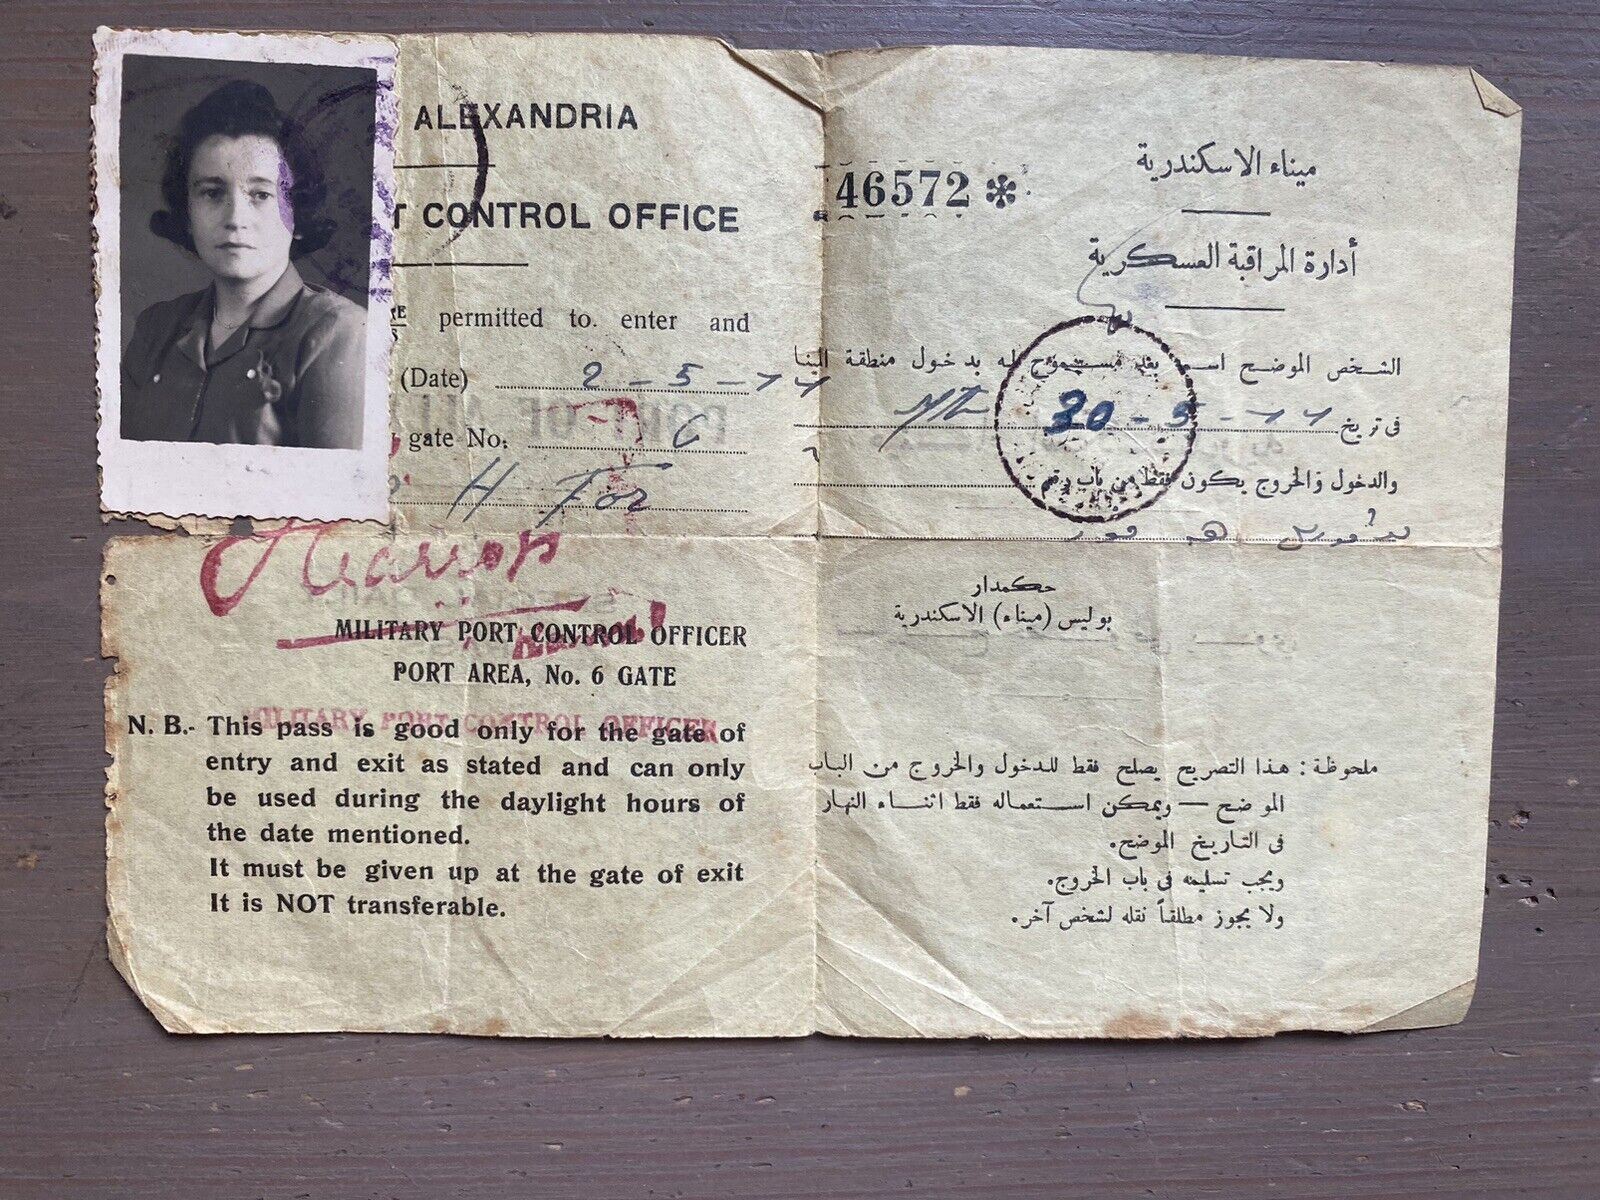 ALEXANDRIA
T CONTROL OFFICE
permitted to. enter and
(Date) 2-5-
gate No. 6
H For
MILITARY PORT CONTROL OFFICER
PORT AREA, No. 6 GATE
MILITARY PORT CONTROL OFFICER
N. B.- This pass is good only for the gate of
entry and exit as stated and can only
be used during the daylight hours of
the date mentioned.
It must be given up at the gate of exit
It is NOT transferable.
46572 *
ميناء الاسكندرية
أدارة المراقبة العسكرية
الشخص الموضح اسمه بعد مسموح له بدخول منطقة المينا
فى تريخ 30-5-
والدخول والخروج يكون فقط من باب رقم
حكمدار
بوليس (ميناء) الاسكندرية
ملحوظة : هذا التصريح يصلح فقط للدخول والخروج من الباب
الموضح — ويمكن استعماله فقط اثناء النهار
فى التاريخ الموضح.
ويجب تسليمه فى باب الخروج.
ولا يجوز مطلقاً نقله لشخص آخر.